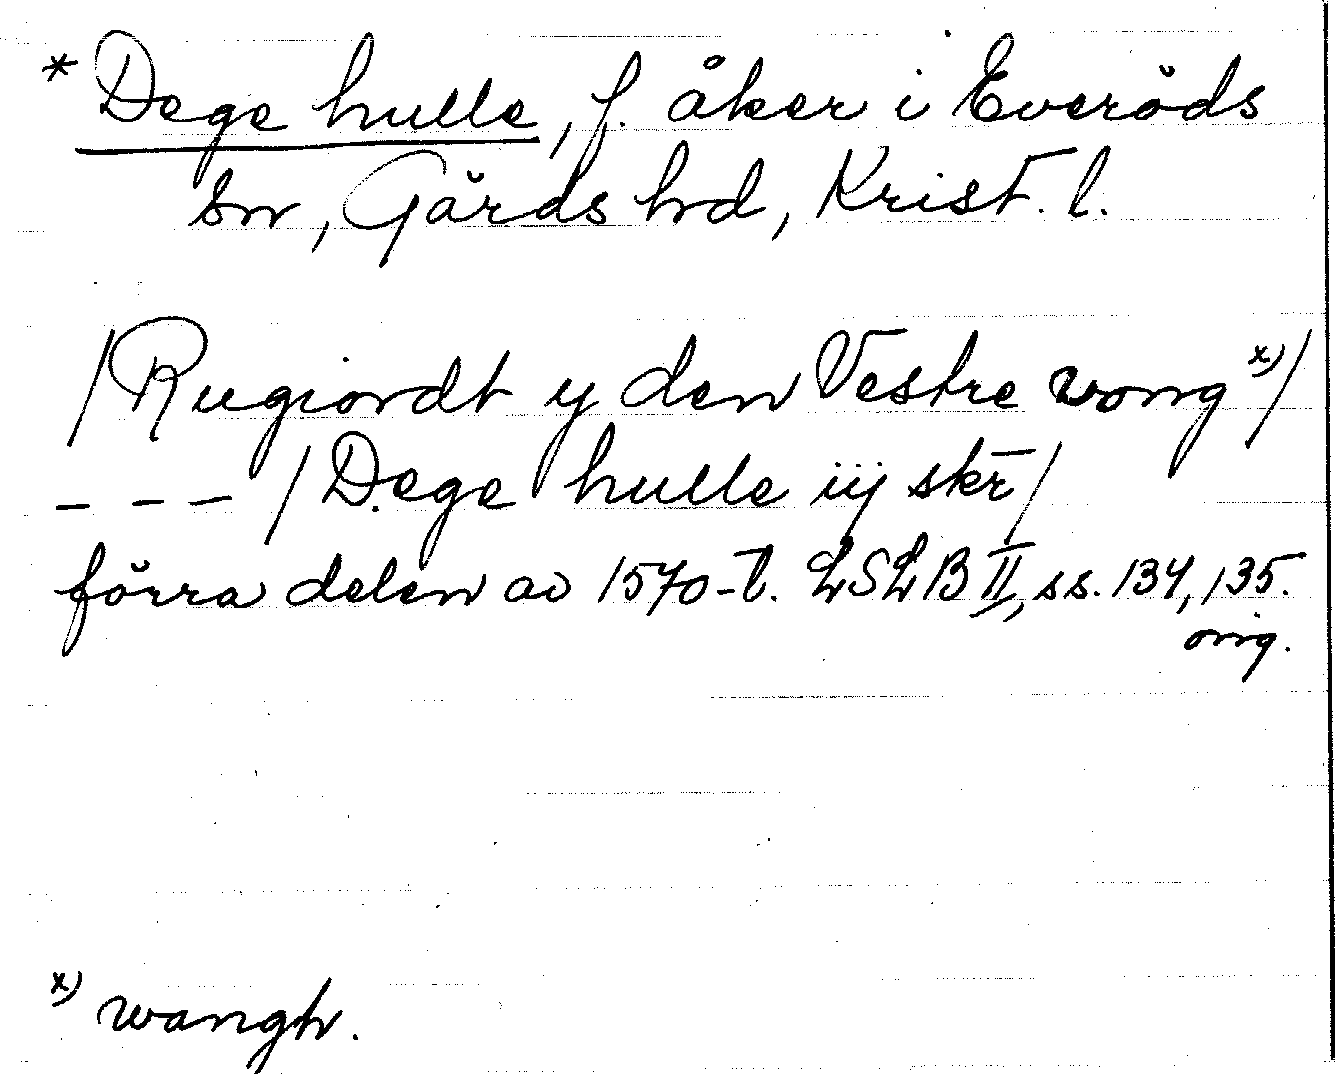 * Dege hulle, f. åker i Everöds
sn, Gärds hd, Krist. l.
/Rugiordt y den Vestre wong x)/
- - - /Dege hulle iij skr̄/
förra delen av 1570-t. LSLB II, ss. 134, 135.
orig.
x) wangh.